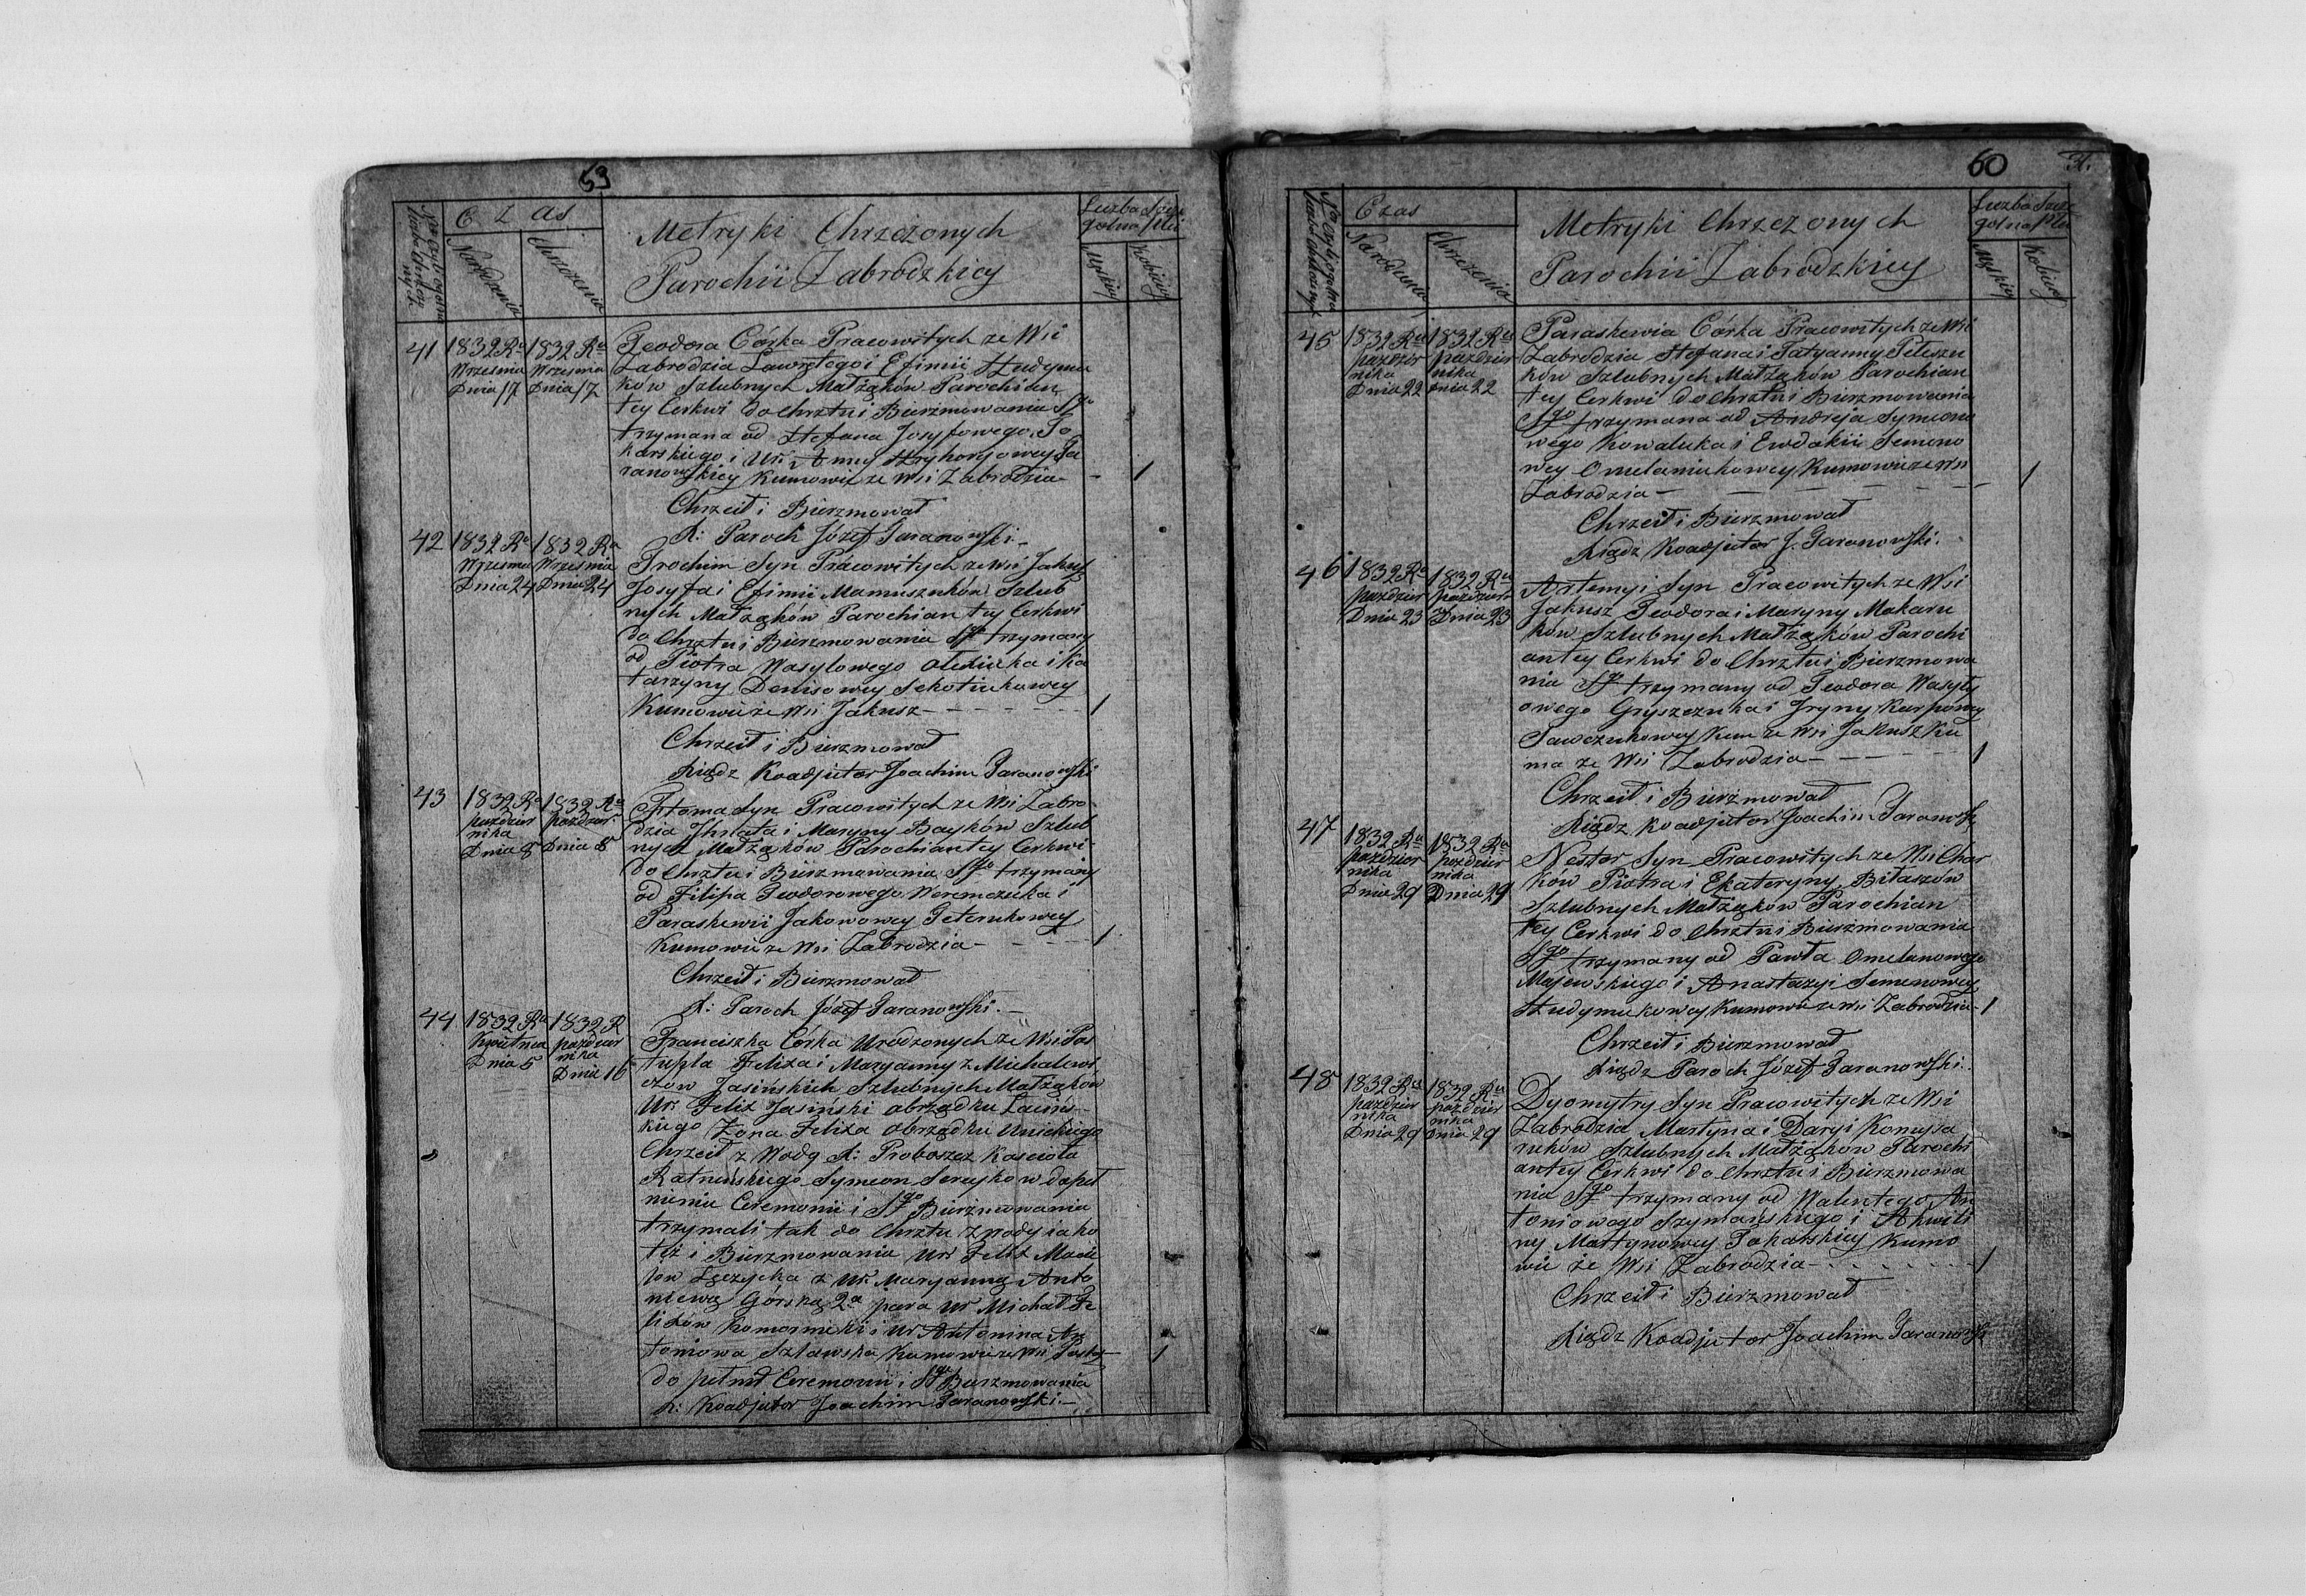 59
C z as
Metryki Chrzczonych
Parochii Zabrodzkiey
Narodzenia
Chrzczenia
Męzkiey
Kobiecey
41
1832 Ra
Wrzesnia
Dnia 17
1832 Ra
Wrzesnia
Dnia 17
Teodora Córka Pracowitych ze Wsi
Zabrodzia Ławrętego i Efimii Hudymu
ków Szlubnych Małżąków Parochian
tey Cerkwi do Chrztu i Bierzmowania Sgo
trzymana od Stefana Josyfowego To
karskiego i Ur: Anny Hryhoryowey Ta
ranowskiey Kumowie ze Wsi Zabrodzia
1
Chrzcił i Bierzmował
X: Paroch Józef Taranowski
42
1832 Ra
Wrzesnia
Dnia 24
1832 Ra
Wrzesnia
Dnia 24
Trochim Syn Pracowitych ze Wsi Jakusz
Josyfa i Efimii Mamuszuków Szlub
nych Małżąków Parochian tey Cerkwi
do Chrztu i Bierzmowania Sgo trzymany
od Piotra Wasylowego Olexiuka i Ka
tarzyny Denisowey Sekotiukowey
Kumowie ze Wsi Jakusz
1
Chrzcił i Bierzmował
Xiądz Koadjutor Joachim Taranowski
43
1832 Ra
pazdzier
nika
Dnia 8
1832 Ra
pazdzier
Dnia 8
Ftoma Syn Pracowitych ze Wsi Zabro
dzia Ihnata i Maryny Bayków Szlub
nych Małżąków Parochian tey Cerkwi
do Chrztu i Bierzmowania Sgo trzymany
od Filipa Teodorowego Woremczuka i
Paraskewii Jakowowey Peterukowey
Kumowie ze Wsi Zabrodzia
1
Chrzcił i Bierzmował
X: Paroch Józef Taranowski.
44
1832 Ra
Kwietnia
Dnia 5
1832 R
pazdzier
nika
Dnia 16
Franciszka Córka Urodzonych ze Wsi Pos
tupla Felixa i Maryanny z Michalewi
czow Jasińskich Szlubnych Małżąków
Ur: Felix Jasiński obrządku Łacińs
kiego Żona Felixa obrządku Unickiego
Chrzcił z Wody X: Proboszcz Koscioła
Ratnenskiego Symeon Serzyko w dopeł
nieniu Ceremonii i Sgo Bierzmowania
trzymali tak do Chrztu z wody iako
też i Bierzmowania Ur: Felix
Łęczycka z Ur: Maryanną Anto
niewą Górską 2a para Ur Michał Fe
lixów Komornicki i Ur Antonina An
toniowa Szławska Kumowie ze Wsi
1
do pełnił Ceremonii i Sgo Bierzmowania
X: Koadjutor Joachim Taranowski.
60
31.
Czas
Metryki Chrzczonych
Parochii Zabrodzkiey
Narodzenia
Chrzczenia
Męzkiey
Kobiecey
45
1832 Ra
pazdzier
nika
Dnia 22
1832 Ra
pazdzier
nika
Dnia 22
Paraskewia Córka Pracowitych ze Wsi
Zabrodzia Stefana i Tatyanny Peteszu
ków Szlubnych Małżąków Parochian
tey Cerkwi do Chrztu i Bierzmowania
Sgo trzymana od Andreja Symeono
wego Kowaluka i Ewdokii Semeno
wey Omelaniukowey Kumowie ze Wsi
Zabrodzia
1
Chrzcił i Bierzmował
Xiądz Koadjutor J. Taranowski.
46
1832 Ra
pazdzier
Dnia 23
1832 Ra
pazdzier
Dnia 23
Artemyi Syn Pracowitych ze Wsi
Jakusz Teodora i Maryny Makaru
ków Szlubnych Małżąków Parochi
an tey Cerkwi do Chrztu i Bierzmowa
nia Sgo trzymany od Teodora Wasyly
owego Gryszczuka i Iryny Karpowey
Sawczukowey Kum ze Wsi Jakusz Ku
ma ze Wsi Zabrodzia
1
Chrzcił i Bierzmował
Xiądz Koadjutor Joachim Taranowsk
47
1832 Ra
pazdzier
nika
Dnia 29
1832 Ra
pazdzier
nika
Dnia 29
Nestor Syn Pracowitych ze Wsi Chor
ków Piotra i Ekateryny Biłaszów
Szlubnych Małżąków Parochian
tey Cerkwi do Chrztu i Bierzmowania
Sgo trzymany od Pawła Omelanowego
Majewskiego i Anastazyi Semenowey
Hudymukowey Kumowie ze Wsi Zabrodzia
1
Chrzcił i Bierzmował
Xiądz Paroch Józef Taranowski.
48
1832 Ra
pazdzier
nika
Dnia 29
1832 Ra
pazdzier
nika
Dnia 29
Dyomytry Syn Pracowitych ze Wsi
Zabrodzia Martyna i Daryi Konusza
ruków Szlubnych Małżąków Parochi
an tey Cerkwi do Chrztu i Bierzmowa
nia Sgo trzymany od Walentego An
toniowego Szymańskiego i Akwili
ny Martynowey Tokarskiey Kumo
wie ze Wsi Zabrodzia
1
Chrzcił i Bierzmował
Xiądz Koadjutor Joachim Taranowsk